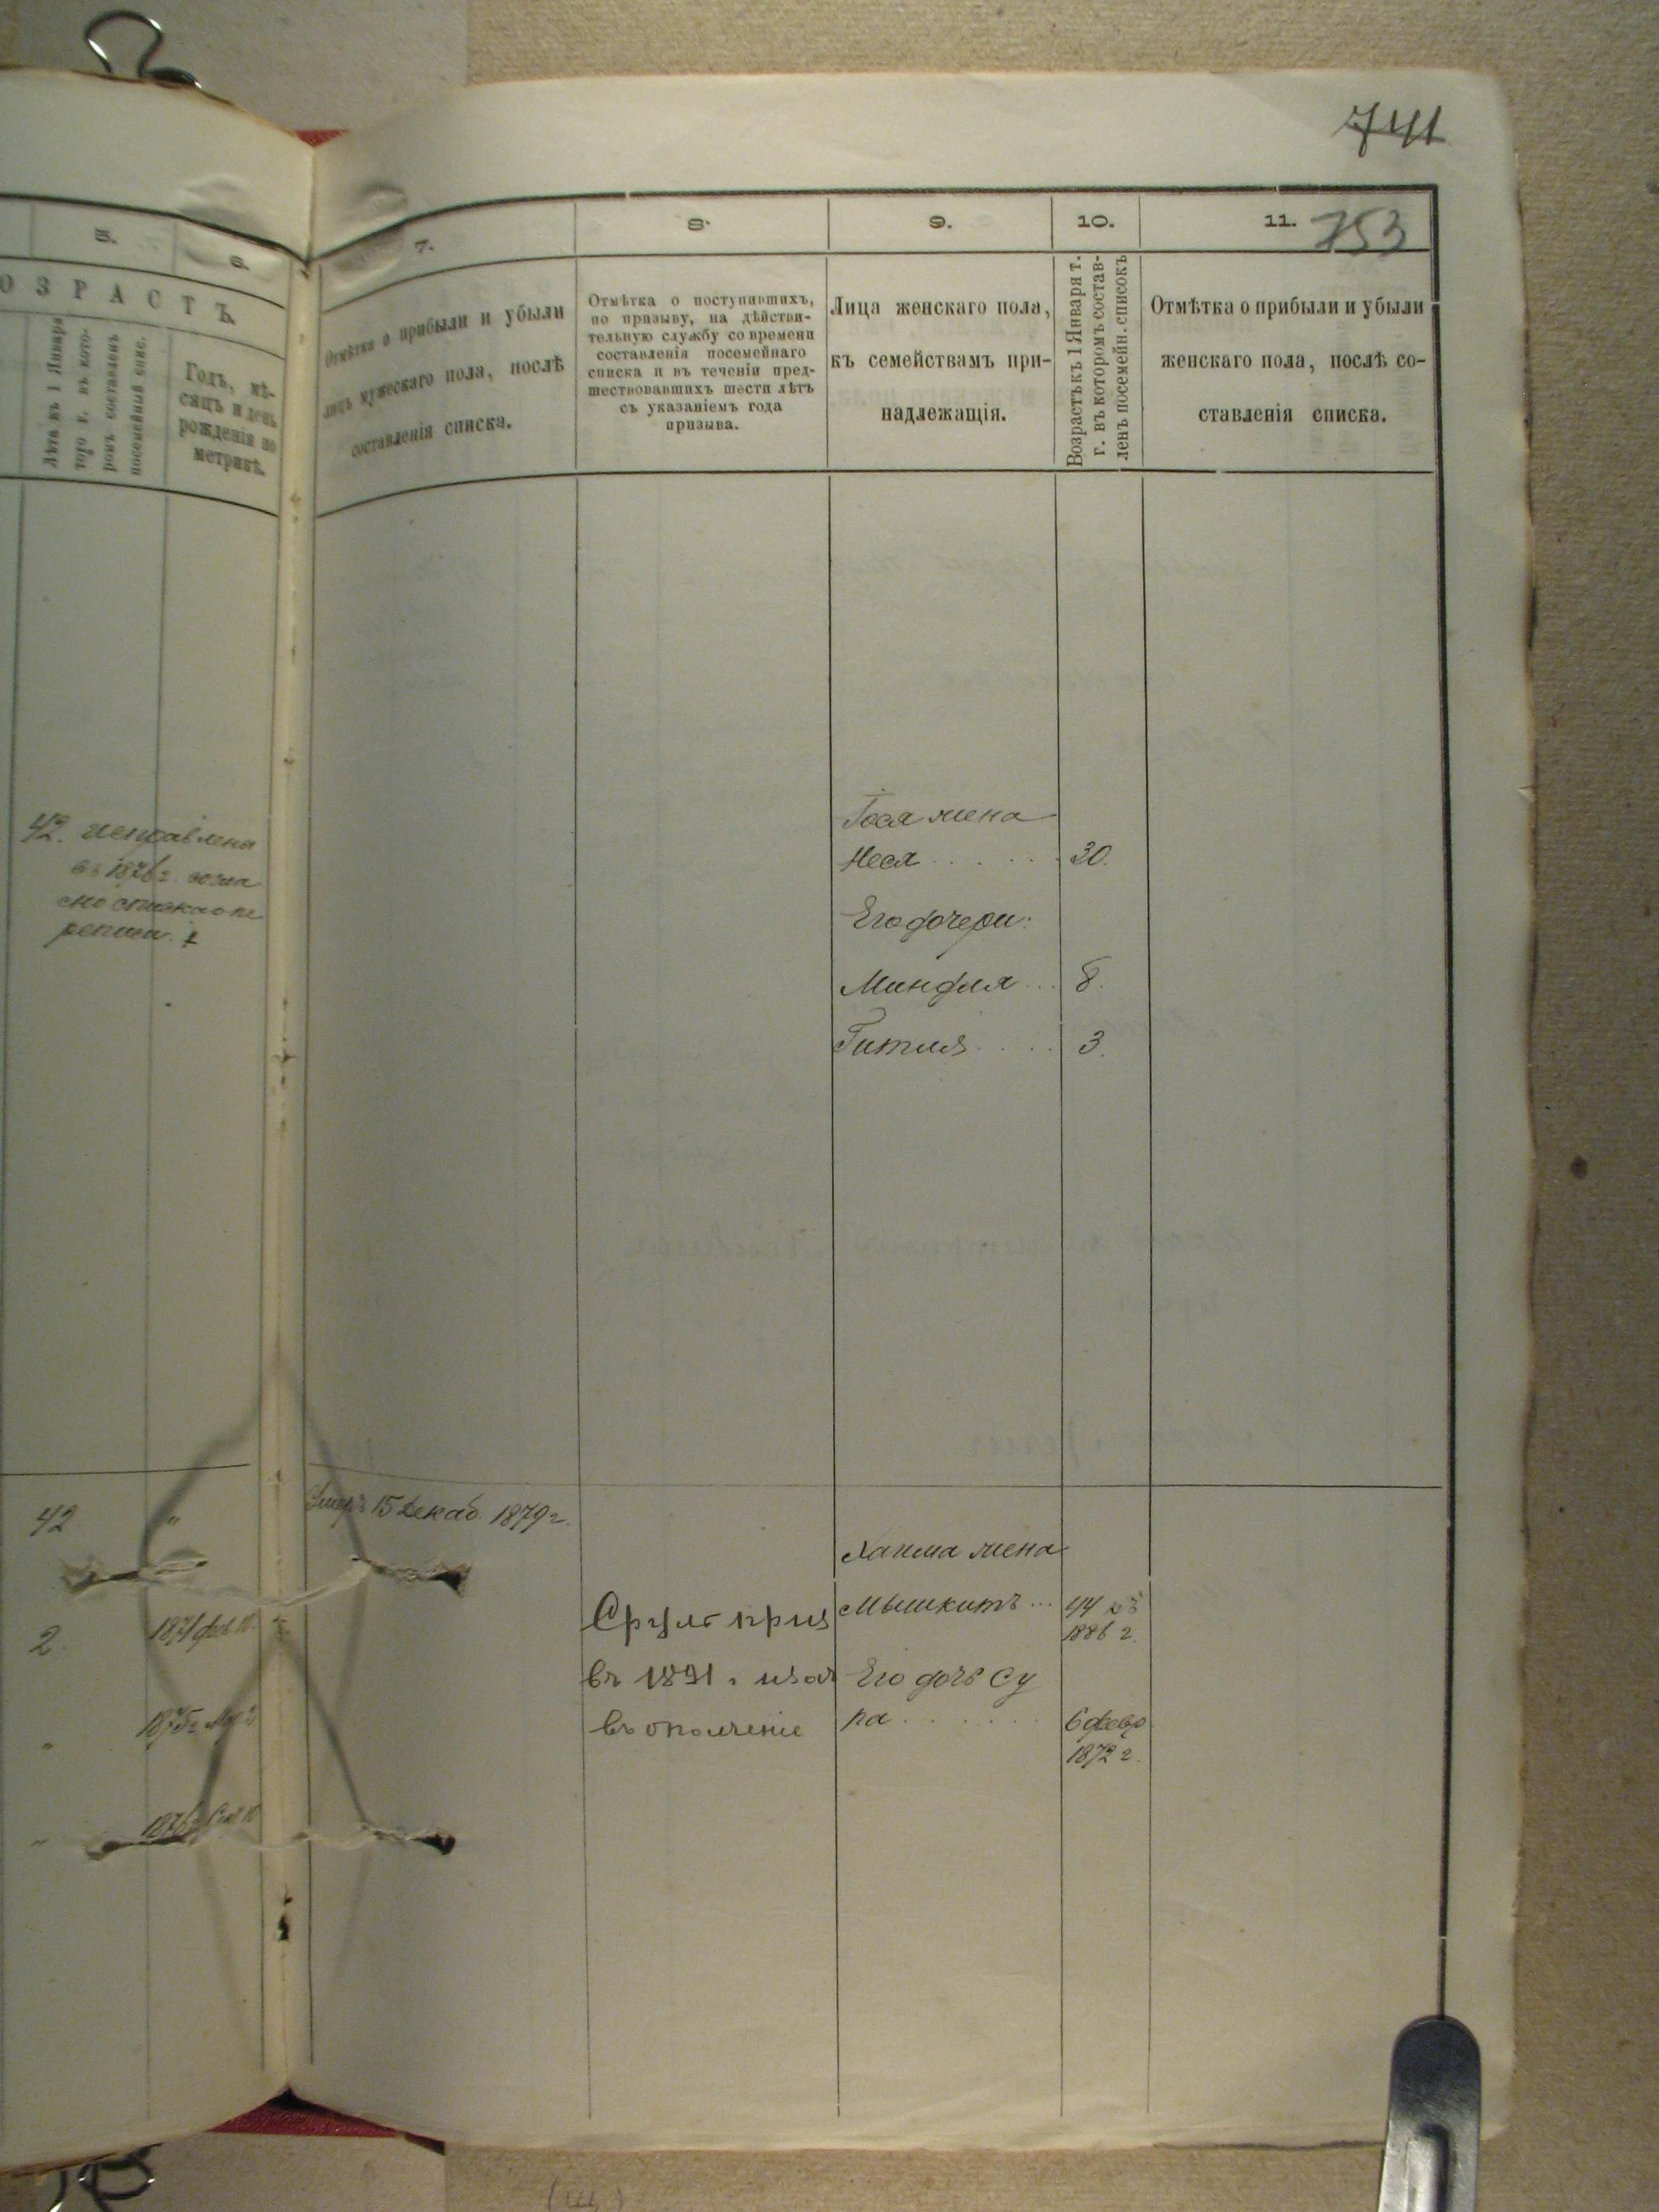 741
753
5.
6.
7.
8.
9.
10.
11.
ОЗРАСТЪ.
Лѣта къ 1 Января
того г. въ кото-
ромъ составленъ
посемейный спис.
Годъ, мѣ-
сяцъ и день
рожденія по
метрикѣ.
Отмѣтка о прибыли и убыли
лицъ мужескаго пола, послѣ
составленія списка.
Отмѣтка о поступившихъ,
по призыву, на дѣйстви-
тельную службу со времени
составленія посемейнаго
списка и въ теченіи пред-
шествовавшихъ шести лѣтъ
съ указаніемъ года
призыва.
Лица женскаго пола,
къ семействамъ при-
надлежащія.
Возрастъ къ 1 Января т.
г. въ которомъ состав-
ленъ посемейн. списокъ
Отмѣтка о прибыли и убыли
женскаго пола, послѣ со-
ставленія списка.
42. исправлены
въ 1876 г.
жена
Неся 30.
Его дочери:
Миндля 8.
Гитля 3.
42 "
Умеръ 15 Декаб. 1879 г.
Хаима жена
Мышкитъ 44 въ
1886 г.
2. 1874 фев. 10.
Сруль приз
въ 1891 г. изач
въ ополченіе
Его дочь Су
ра 6 февр
1872 г.
" 1875 г.
" 1876 г.